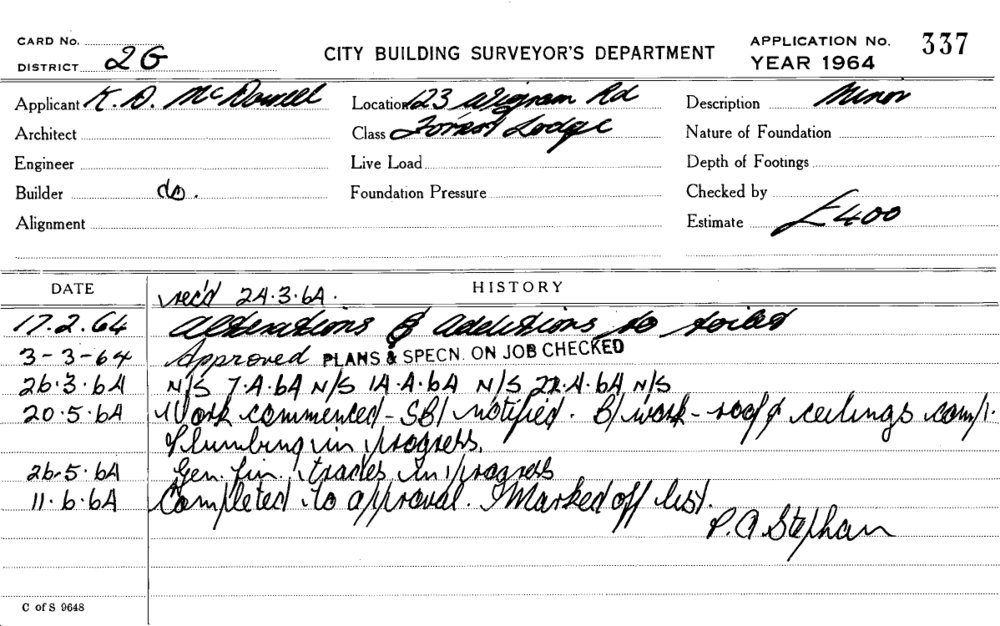 CARD No.
DISTRICT 2G
CITY BUILDING SURVEYOR'S DEPARTMENT
APPLICATION No. 337
YEAR 1964
Applicant K. D. McDowell
Location 123 Wigram Rd
Description Minor
Architect
Class Forest Lodge
Nature of Foundation
Engineer
Live Load
Depth of Footings
Builder do.
Foundation Pressure
Checked by
Alignment
Estimate £400
DATE
HISTORY
rec'd 24.3.64.
17.2.64 Alterations & additions to toilet
3-3-64 Approved PLANS & SPECN. ON JOB CHECKED
26.3.64 N/S 7.4.64 N/S 14.4.64 N/S 22.4.64 N/S
20.5.64 Work commenced - SBI notified. B/work - roof & ceilings compl.
Plumbing in progress.
26.5.64 Gen. fin. trades in progress
11.6.64 Completed to approval. Marked off list.
P. A Stephan
C of S 9648